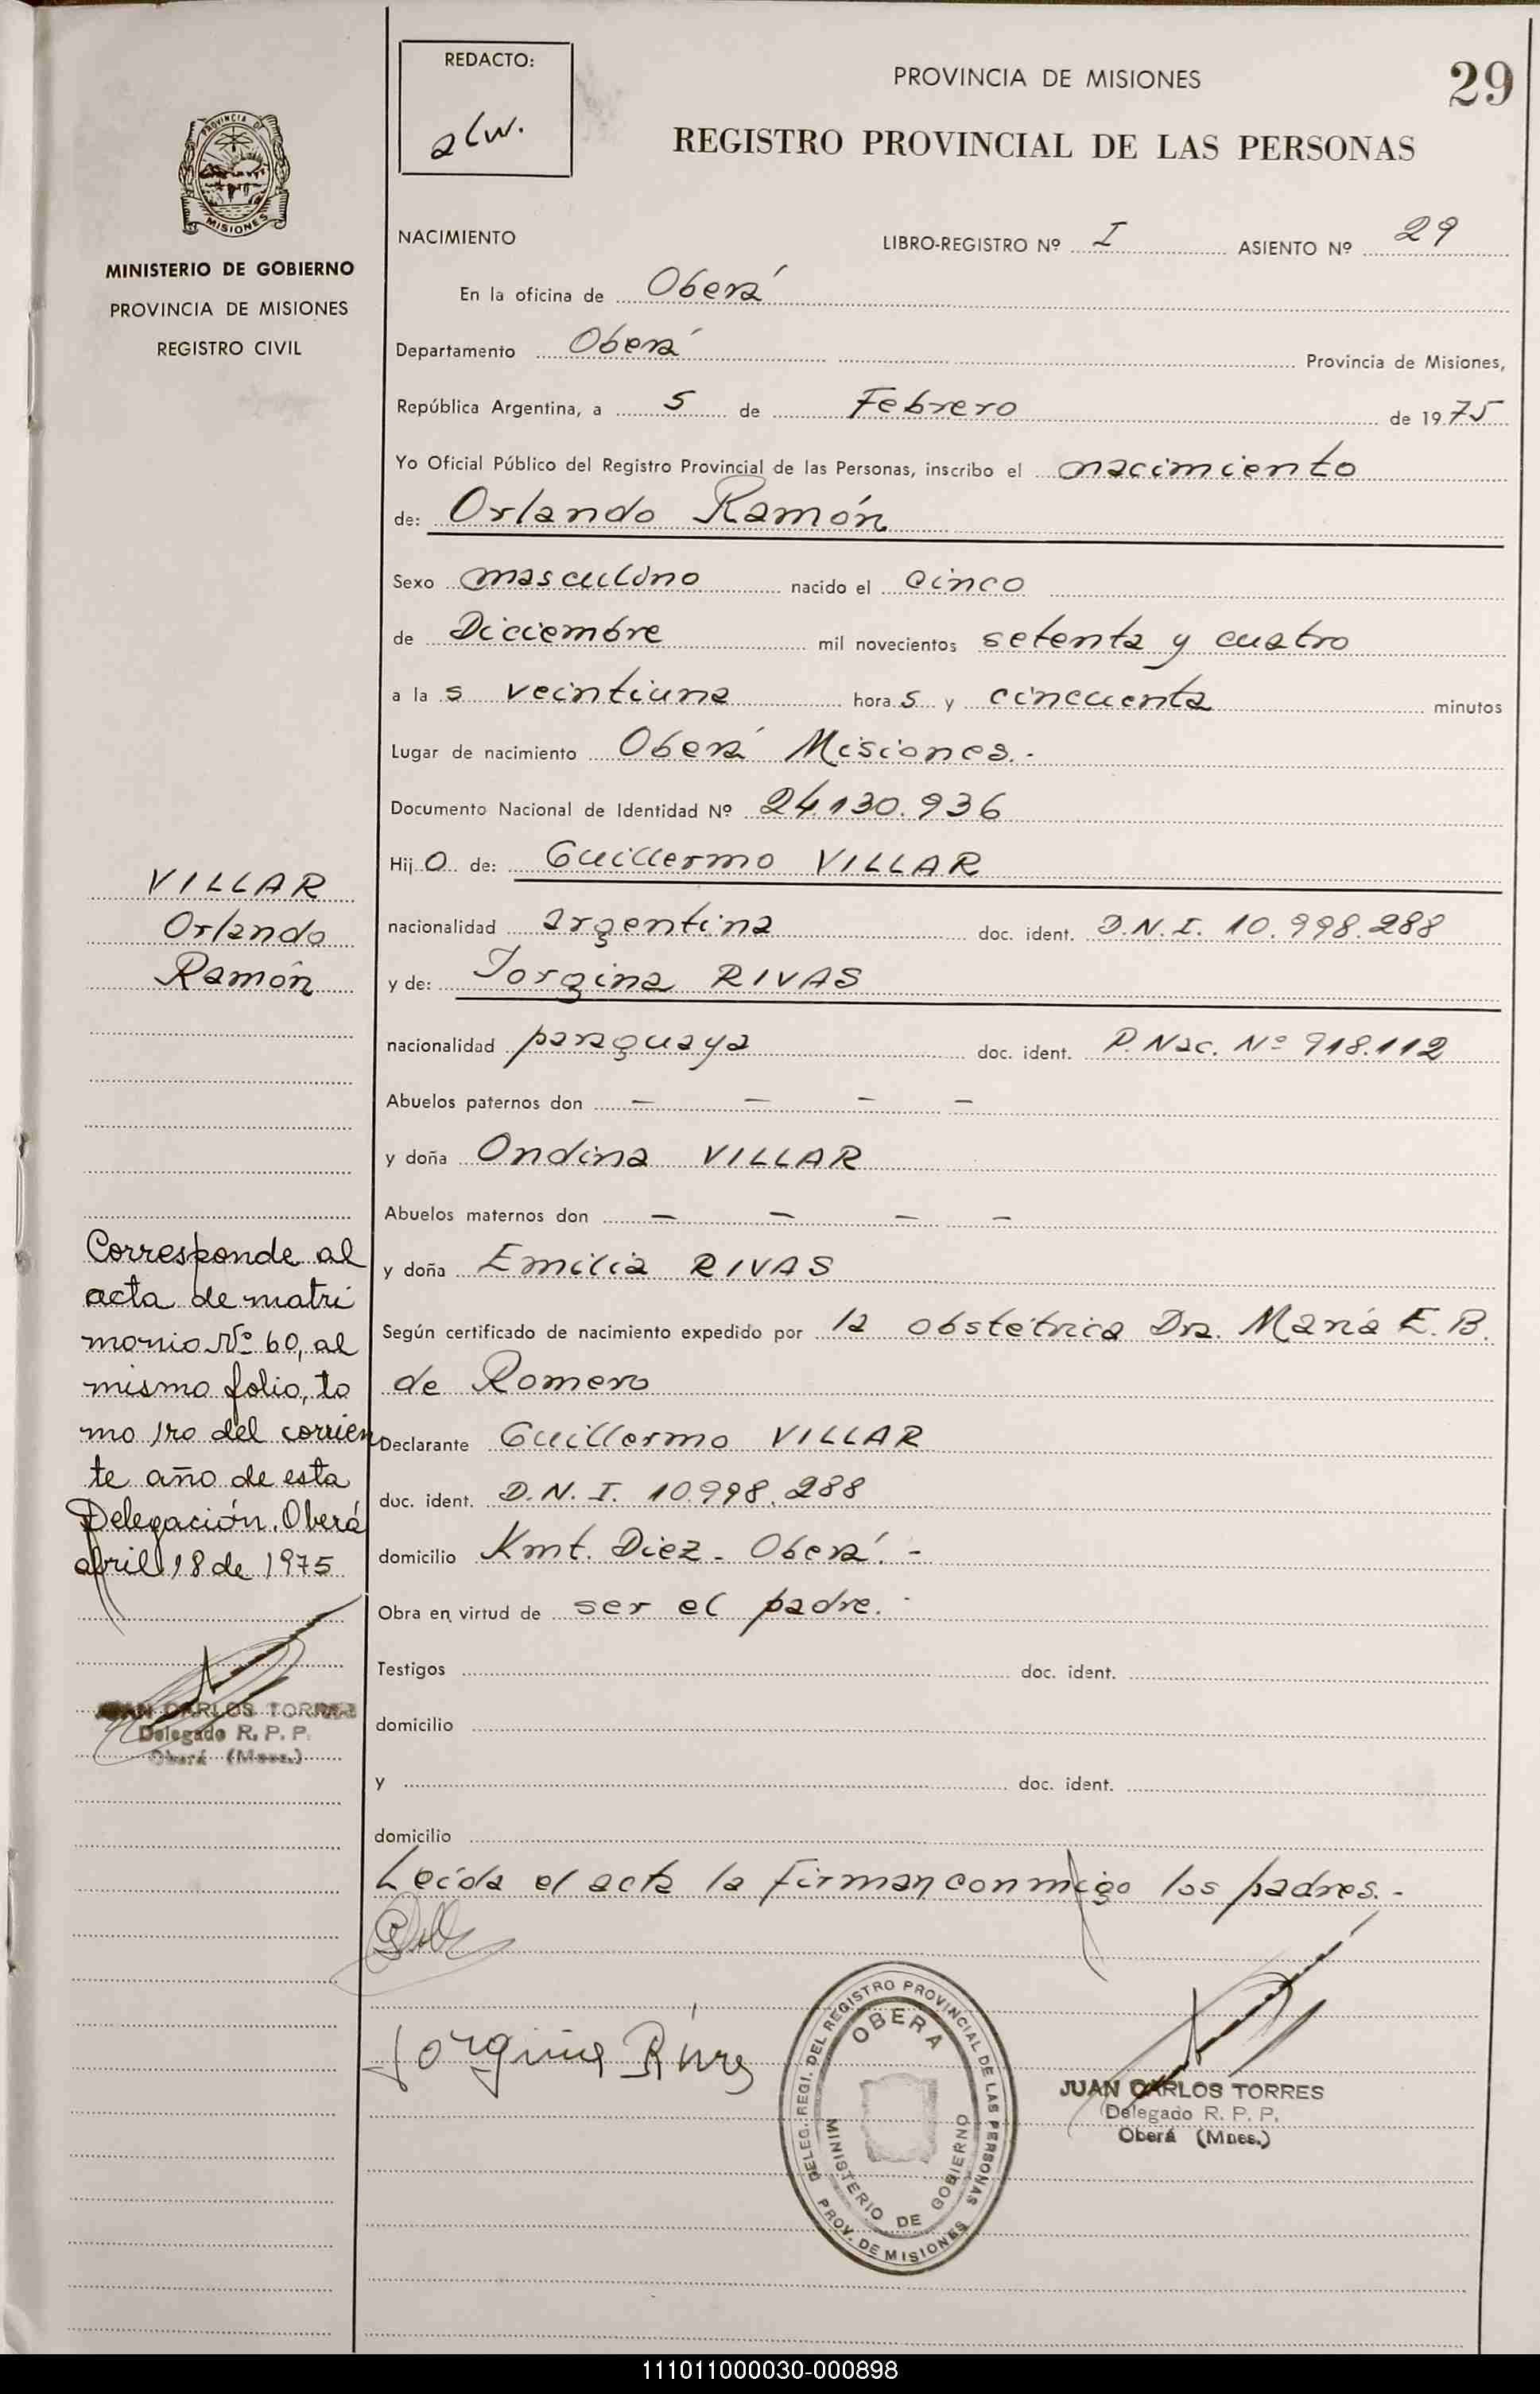 REDACTO:
alw.
PROVINCIA DE MISIONES
29
REGISTRO PROVINCIAL DE LAS PERSONAS
PROVINCIA DE
MISIONES
MINISTERIO DE GOBIERNO
PROVINCIA DE MISIONES
REGISTRO CIVIL
NACIMIENTO
LIBRO-REGISTRO Nº I ASIENTO Nº 29
En la oficina de Oberá
Departamento Oberá Provincia de Misiones,
República Argentina, a 5 de Febrero de 1975
Yo Oficial Público del Registro Provincial de las Personas, inscribo el nacimiento
de: Orlando Ramón
Sexo masculino nacido el cinco
de Diciembre mil novecientos setenta y cuatro
a las veintiuna horas y cincuenta minutos
Lugar de nacimiento Oberá Misiones.-
Documento Nacional de Identidad Nº 24.130.936
Hijo de: Guillermo VILLAR
nacionalidad argentina doc. ident. D.N.I. 10.998.288
y de: Jorgina RIVAS
nacionalidad paraguaya doc. ident. P. Nac. Nº 918.112
Abuelos paternos don — — — —
y doña Ondina VILLAR
Abuelos maternos don — — — —
y doña Emilia RIVAS
Según certificado de nacimiento expedido por la obstétrica Dra. María E. B.
de Romero
Declarante Guillermo VILLAR
doc. ident. D.N.I. 10.998.288
domicilio Kmt. Diez - Oberá.-
Obra en virtud de ser el padre.-
Testigos doc. ident.
domicilio
y doc. ident.
domicilio
Leída el acta la firman conmigo los padres.-
Jorgina Rivas
DELEG. REGI. DEL REGISTRO PROVINCIAL DE LAS PERSONAS
PROV. DE MISIONES
OBERA
MINISTERIO DE GOBIERNO
JUAN CARLOS TORRES
Delegado R. P. P.
Oberá (Mnes.)
VILLAR
Orlando
Ramón
Corresponde al
acta de matri
monio Nº 60, al
mismo folio, to
mo 1ro del corrien
te año de esta
Delegación. Oberá
abril 18 de 1975
JUAN CARLOS TORRES
Delegado R. P. P.
Oberá (Mnes.)
111011000030-000898